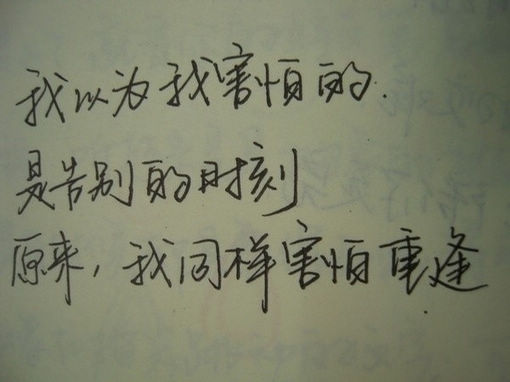 我以为我害怕的
是告别的时刻
原来，我同样害怕重逢